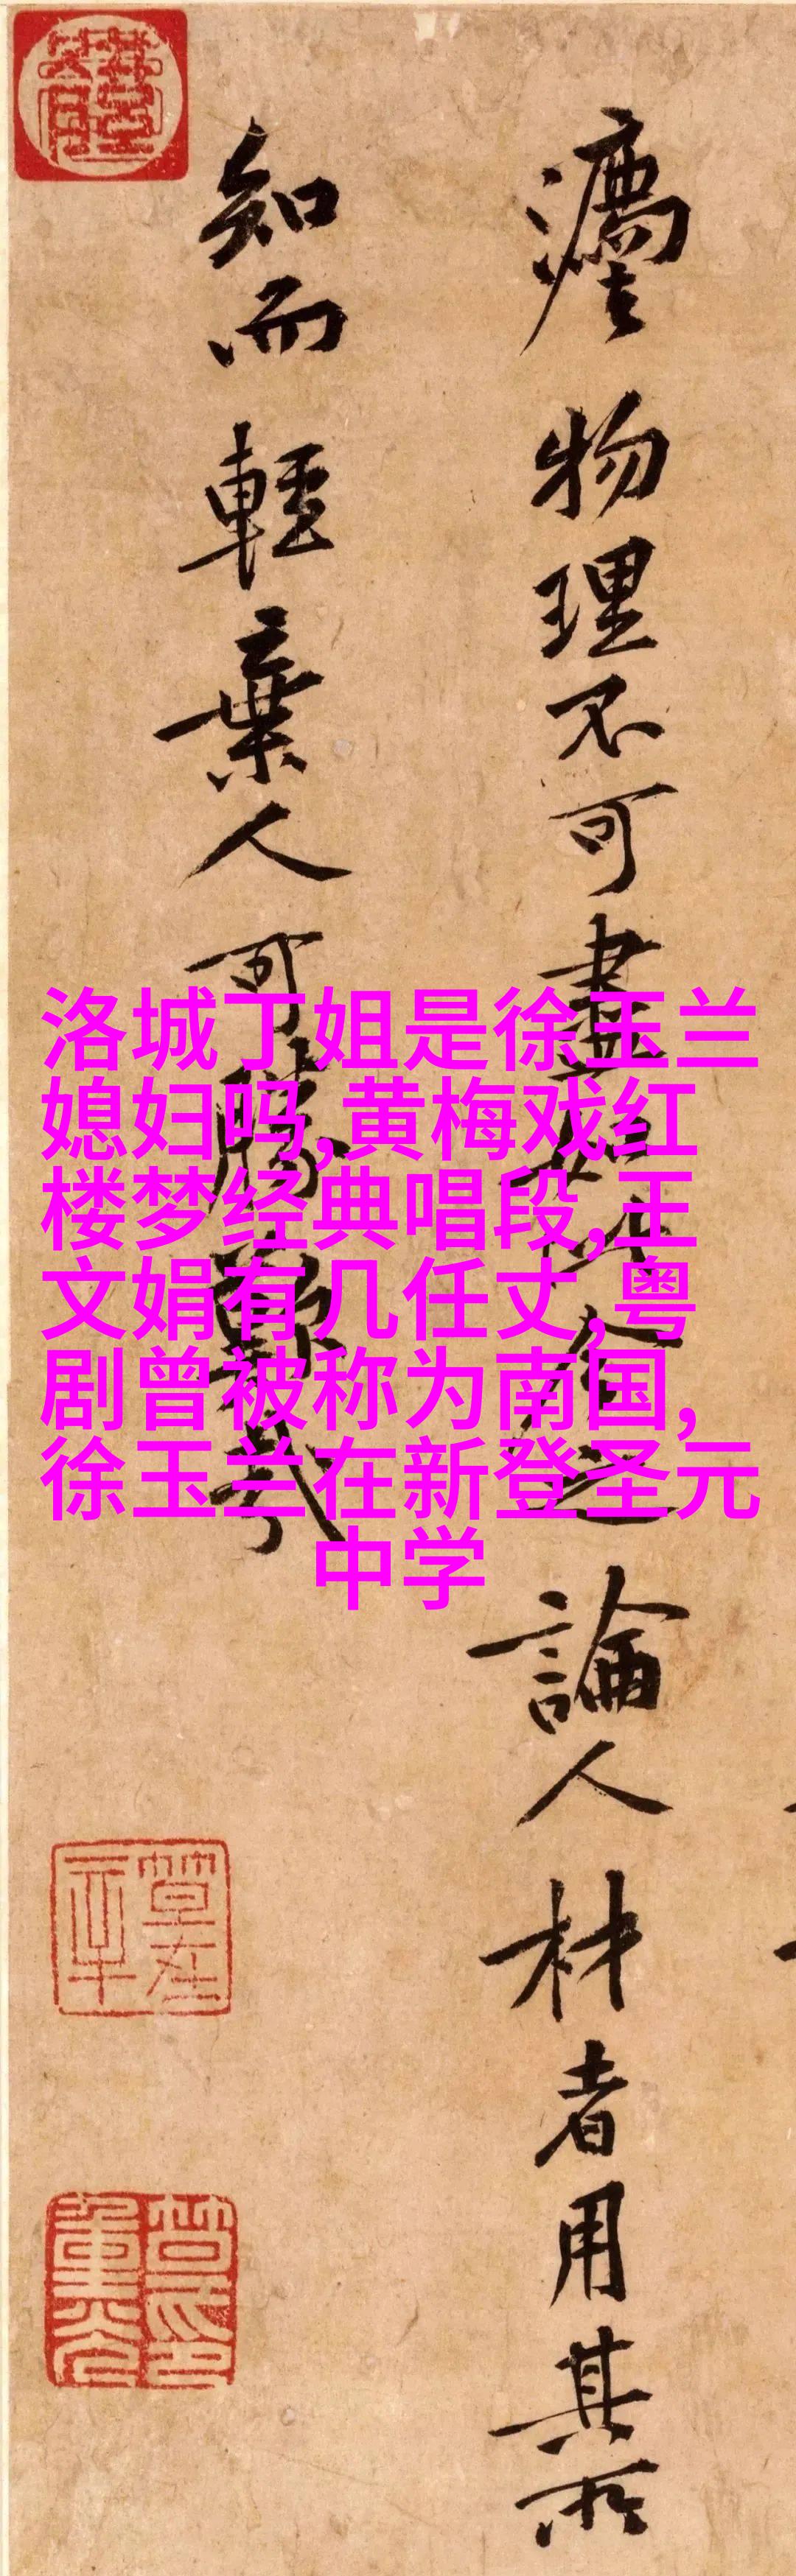 物理不可盡如之論人材者用其所
知而輕棄人可勝哉
洛城丁姐是徐玉兰
媳妇吗,黄梅戏红
楼梦经典唱段,王
文娟有几任丈,粤
剧曾被称为南国,
徐玉兰在新登圣元
中学